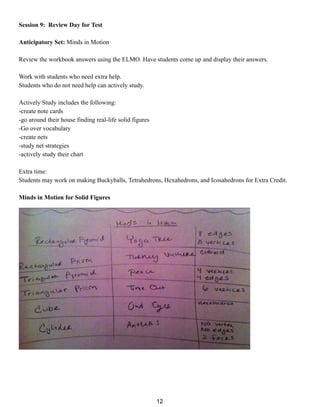 Session 9:  Review Day for Test
Anticipatory Set: Minds in Motion
Review the workbook answers using the ELMO. Have students come up and display their answers.
Work with students who need extra help.
Students who do not need help can actively study.
Actively Study includes the following:
-create note cards
-go around their house finding real-life solid figures
-Go over vocabulary
-create nets
-study net strategies
-actively study their chart
Extra time:
Students may work on making Buckyballs, Tetrahedrons, Hexahedrons, and Icosahedrons for Extra Credit.
Minds in Motion for Solid Figures
Minds in Motion
Rectangular Pyramid Yoga Tree 8 edges
vertices
Rectangular Prism Turkey
Triangular Pyramid Peace 4 vertices
edges
Triangular Prism Time Out 6 vertices
Cube Owl Eyes
Cylinder Antlers No
No edges
2 faces
12